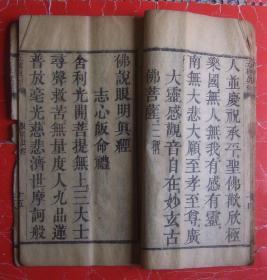 人並慶祝承平聖佛歡欣極
樂國無人無我有感有靈
南無大悲大願至孝至尊廣
大靈感觀音自在妙玄古
佛菩薩三稱
佛說眼明真經
志心皈命禮
舍利光開菩提無上三大士
尋聲救苦無量度人九品蓮
普放毫光慈悲濟世摩訶般